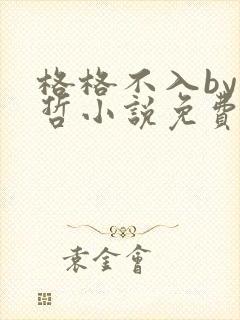 格格不入by
哲小說免費
袁金會